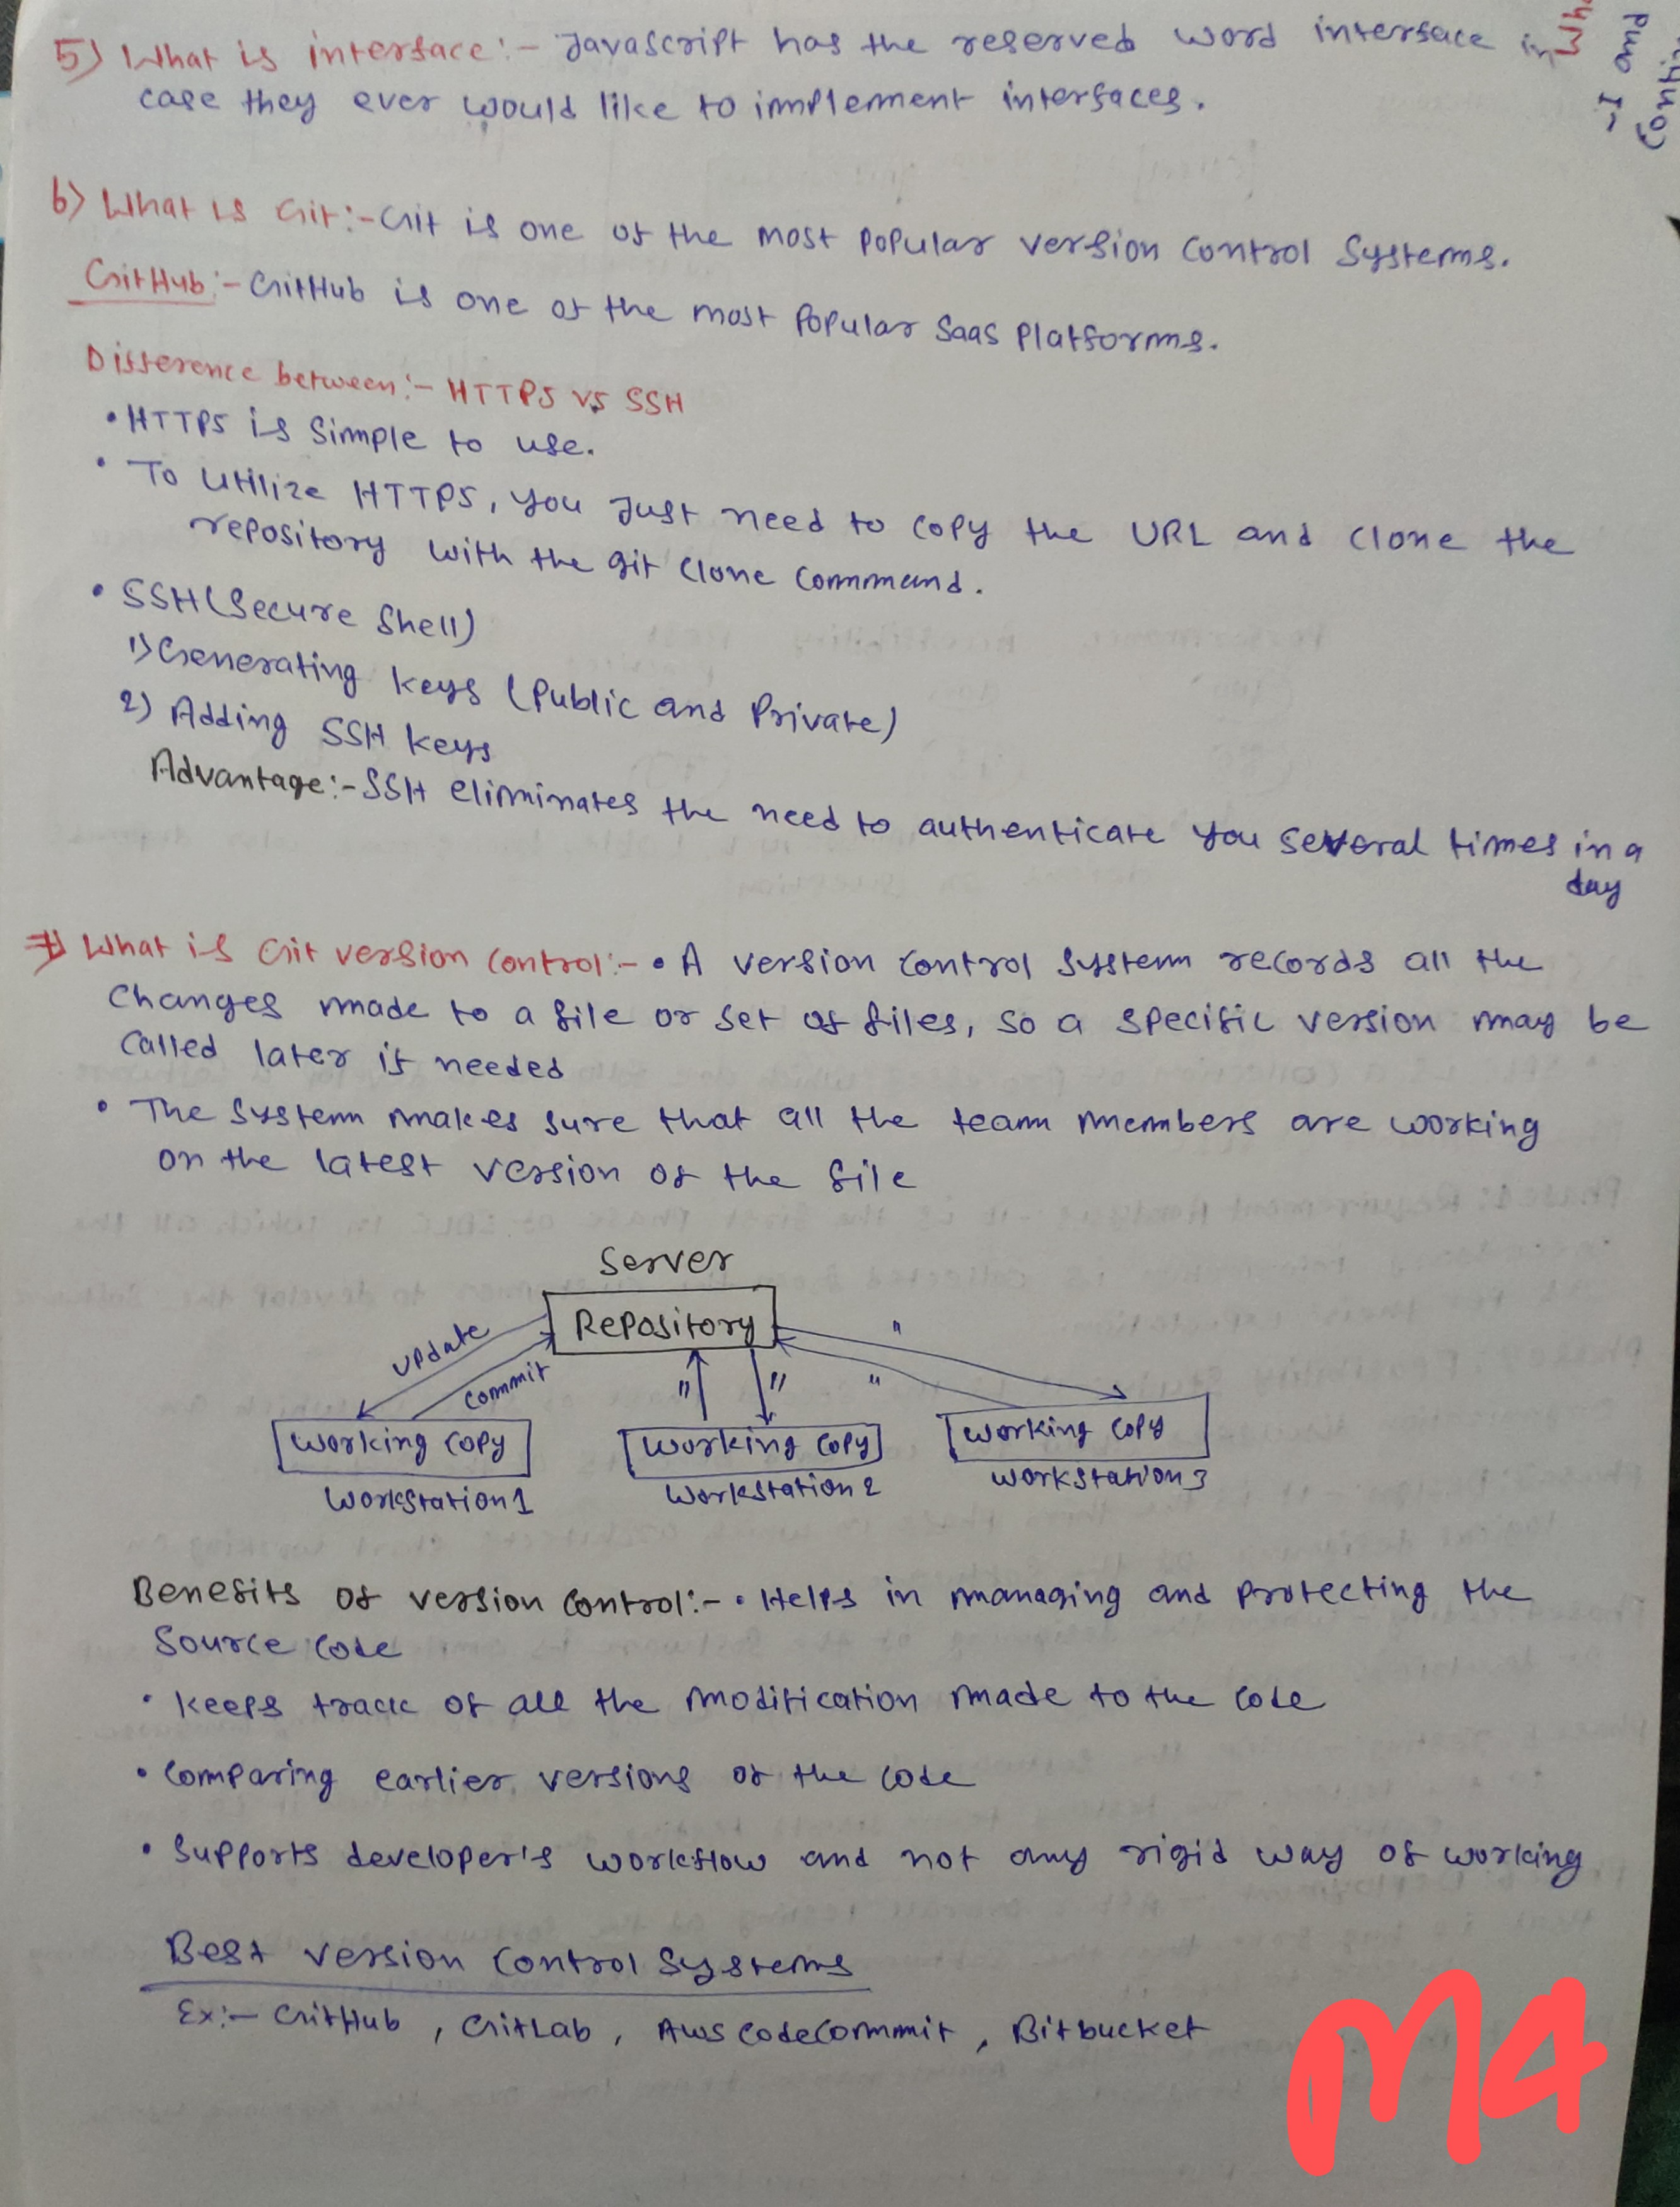 5) What is interface:- Javascript has the reserved word interface in
case they ever would like to implement interfaces.
6) What is Git:- Git is one of the most popular version control systems.
GitHub:- GitHub is one of the most popular SaaS platforms.
Difference between:- HTTPS vs SSH
• HTTPS is simple to use.
• To utilize HTTPS, you just need to copy the URL and clone the
repository with the git clone command.
• SSH (Secure Shell)
1) Generating keys (Public and Private)
2) Adding SSH keys
Advantage:- SSH eliminates the need to authenticate you several times in a
day
7) What is Git version control:- • A version control system records all the
changes made to a file or set of files, so a specific version may be
called later if needed
• The system makes sure that all the team members are working
on the latest version of the file
Server
Repository
update
commit
"
" "
"
Working copy
Working copy
Working copy
Workstation 1
Workstation 2
Workstation 3
Benefits of version control:- • Helps in managing and protecting the
source code
• keeps track of all the modification made to the code
• comparing earlier versions of the code
• supports developer's workflow and not any rigid way of working
Best version control systems
Ex:- GitHub, GitLab, AWS codecommit, Bitbucket
M4
- I and